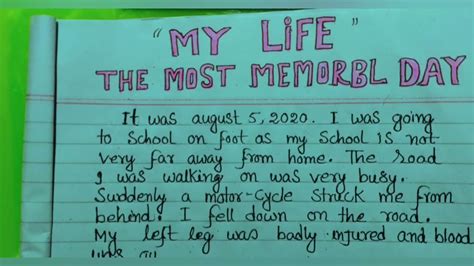 "MY LiFE"
THE MOST MEMORBL DAY
It was august 5, 2020. I was going
to School on foot as my School is not
very far away from home. The road
I was walking on was very busy.
Suddenly a motor-cycle struck me from
behind. I fell down on the road.
My left leg was badly injured and blood